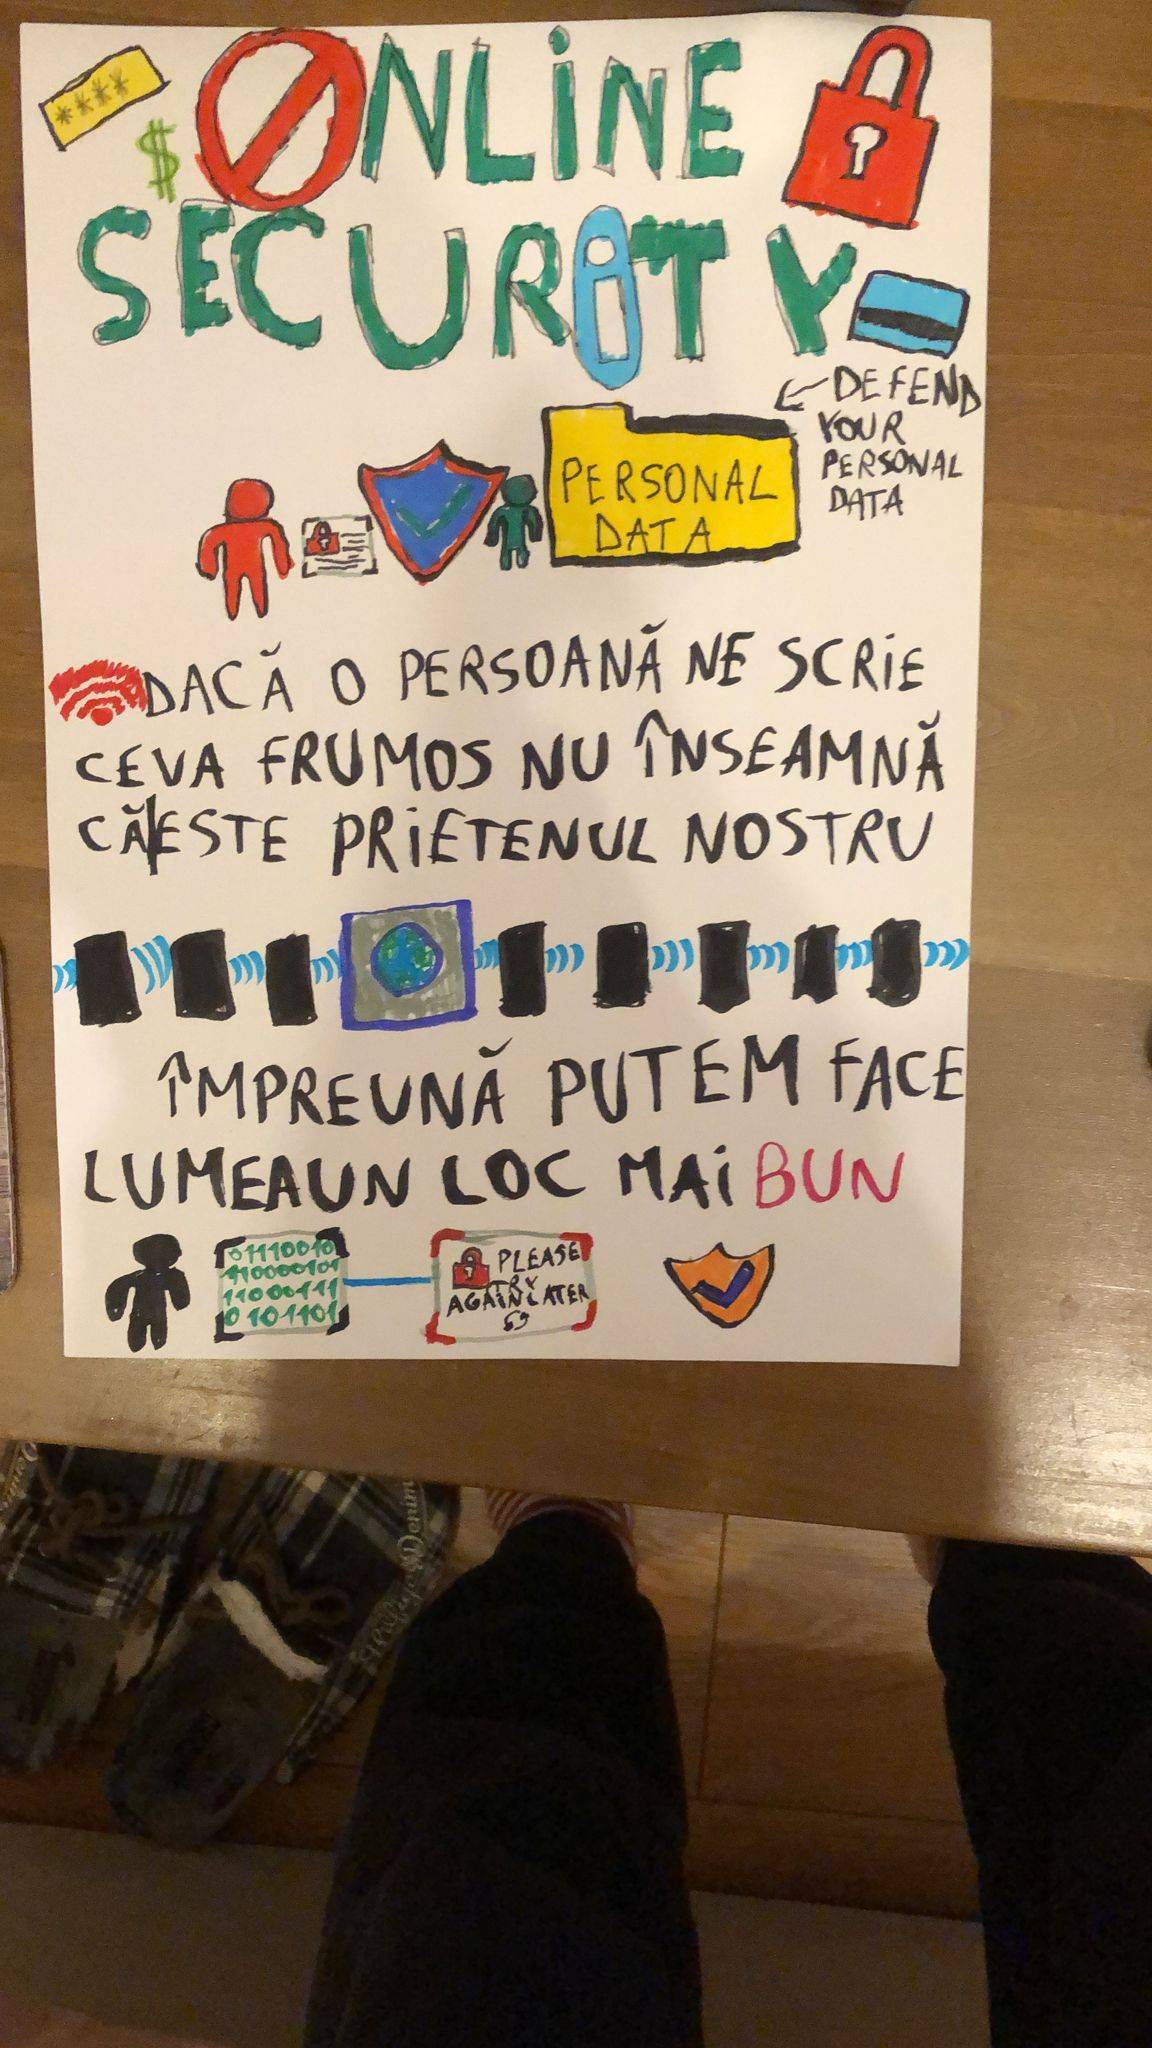 ****
$
ONLINE
SECURITY
DEFEND
YOUR
PERSONAL
DATA
PERSONAL
DATA
DACĂ O PERSOANĂ NE SCRIE
CEVA FRUMOS NU ÎNSEAMNĂ
CĂ ESTE PRIETENUL NOSTRU
ÎMPREUNĂ PUTEM FACE
LUMEA UN LOC MAI BUN
01110010
110000101
11000111
0101101
PLEASE
TRY
AGAIN LATER
Denim